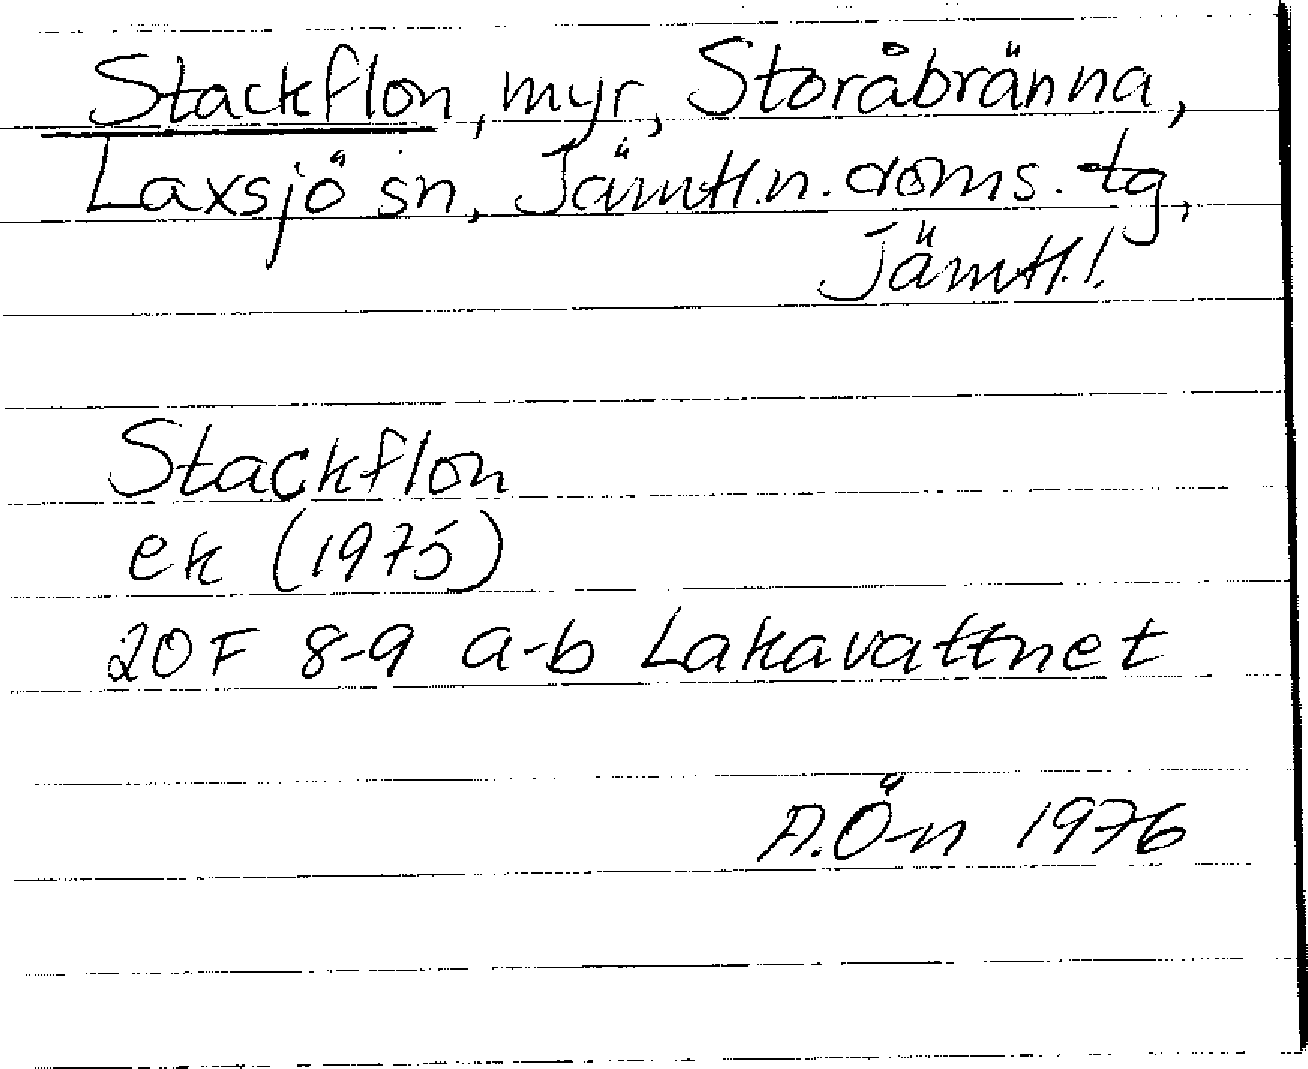 Stackflon, myr, Storåbränna,
Laxsjö sn, Jämtl.n. doms. tg,
Jämtl.l.
Stackflon
ek (1975)
20F 8-9 a-b Lakavattnet
A.Ö-n 1976